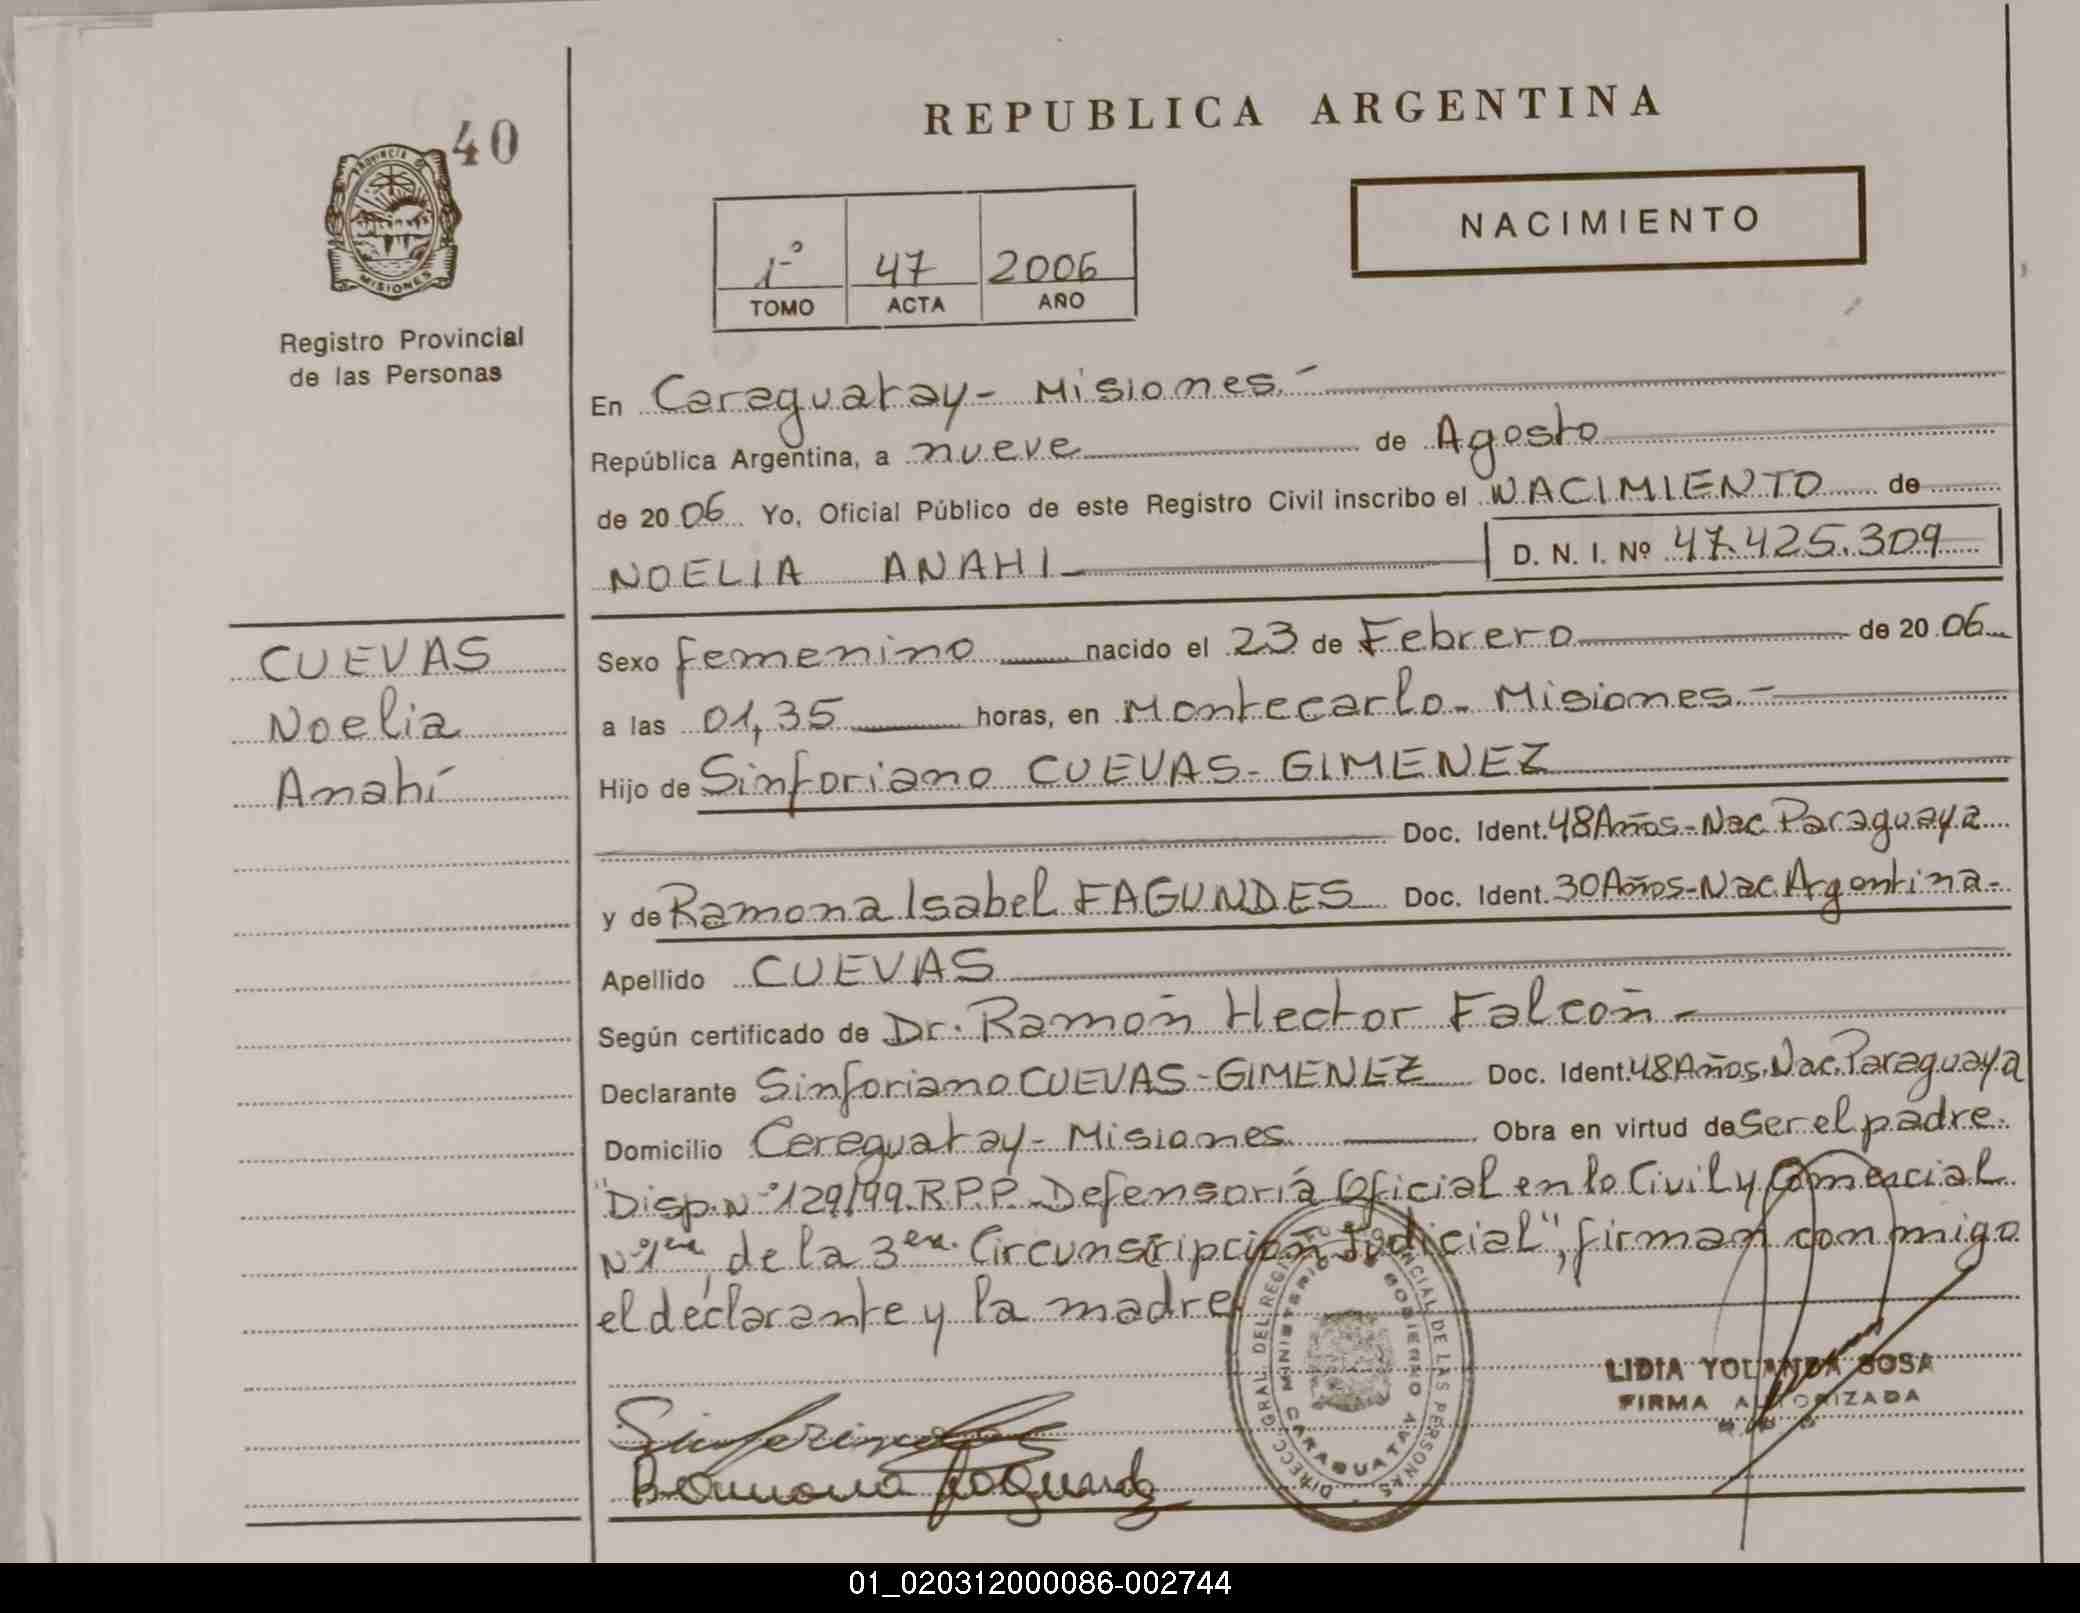 40
PROVINCIA DE
MISIONES
Registro Provincial
de las Personas
REPUBLICA ARGENTINA
NACIMIENTO
1º 47 2006
TOMO ACTA AÑO
En Caraguatay - Misiones.-
República Argentina, a nueve de Agosto
de 2006 Yo, Oficial Público de este Registro Civil inscribo el NACIMIENTO de
NOELIA ANAHI D. N. I. Nº 47.425.309
CUEVAS
Noelia
Anahí
Sexo femenino nacido el 23 de Febrero de 2006
a las 01,35 horas, en Montecarlo - Misiones.-
Hijo de Sinforiano CUEVAS - GIMENEZ
Doc. Ident. 48 Años - Nac. Paraguaya
y de Ramona Isabel FAGUNDES Doc. Ident. 30 Años - Nac. Argentina -
Apellido CUEVAS
Según certificado de Dr. Ramón Hector Falcón -
Declarante Sinforiano CUEVAS - GIMENEZ Doc. Ident. 48 Años. Nac. Paraguaya
Domicilio Cereguatay - Misiones Obra en virtud de ser el padre.
"Disp. Nº 129/99. R.P.P. - Defensoría Oficial en lo Civil y Comercial
Nº 1era de la 3era. Circunscripción Judicial", firman con migo
el declarante y la madre
DIRECC. GRAL. DEL REGISTRO PROVINCIAL DE LAS PERSONAS
MINISTERIO DE GOBIERNO
CARAGUATAY
LIDIA YOLANDA SOSA
FIRMA AUTORIZADA
Ramona Fagundez
01_020312000086-002744